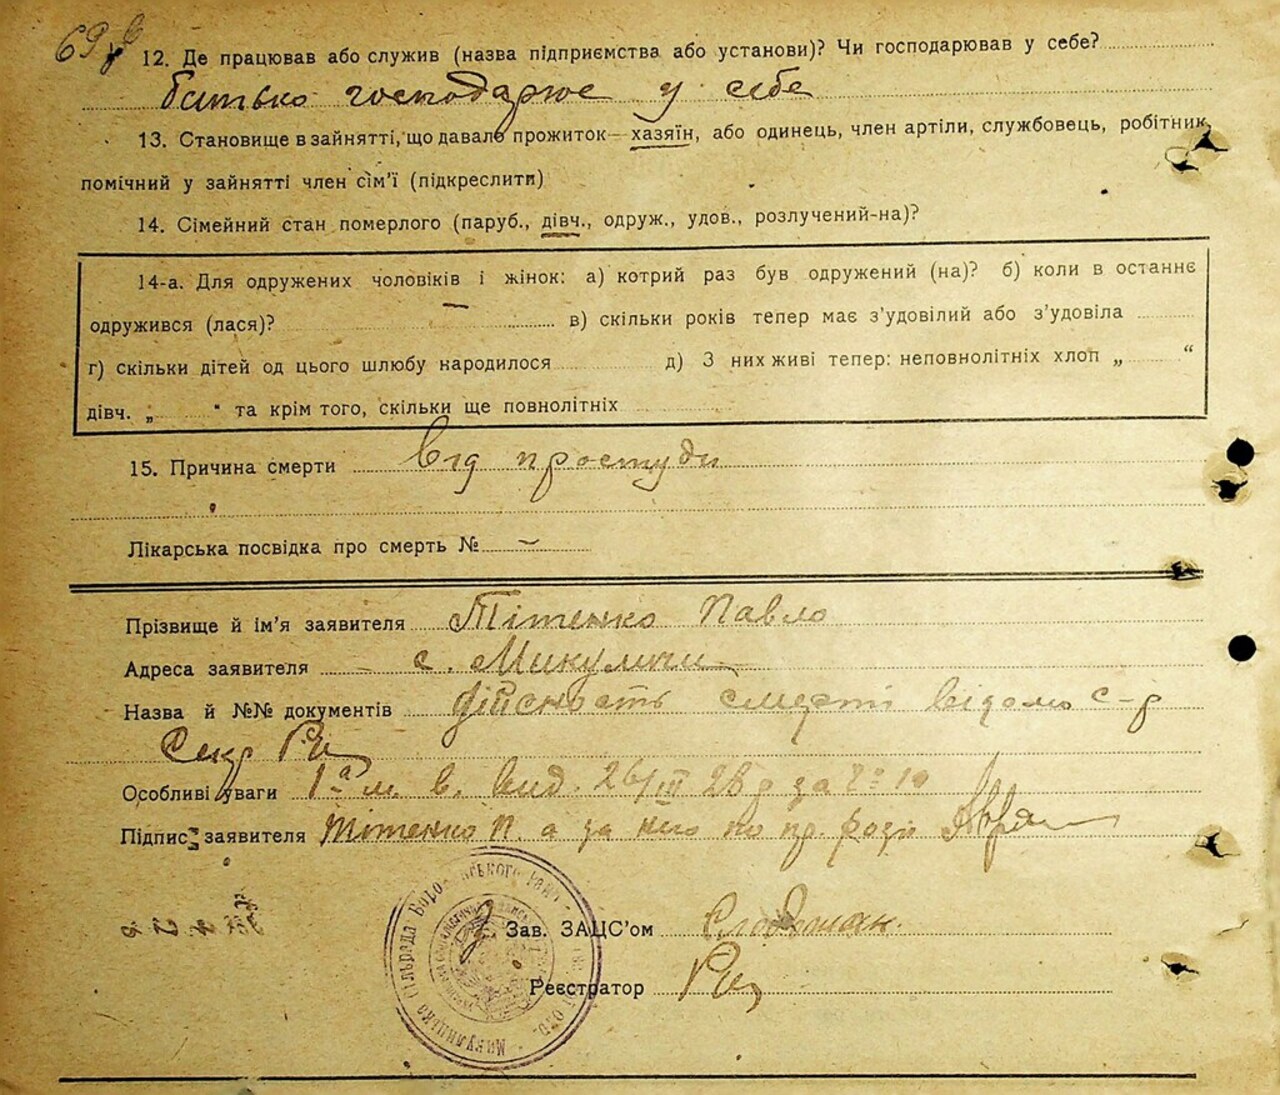 69
12. Де працював або служив (назва підприємства або установи)? Чи господарював у себе?
батько господарює у себе
13. Становище в зайнятті, що давало прожиток — хазяїн, або одинець, член артіли, службовець, робітник,
помічний у зайнятті член сім'ї (підкреслити)
14. Сімейний стан померлого (паруб., дівч., одруж., удов., розлучений-на)?
14-а. Для одружених чоловіків і жінок: а) котрий раз був одружений (на)? б) коли в останнє
одружився (лася)? — в) скільки років тепер має з'удовілий або з'удовіла
г) скільки дітей од цього шлюбу народилося д) З них живі тепер: неповнолітніх хлоп „ “
дівч. „ “ та крім того, скільки ще повнолітніх
15. Причина смерти від простуди
Лікарська посвідка про смерть № —
Прізвище й ім'я заявителя Тітенко Павло
Адреса заявителя с. Микуличи
Назва й №№ документів дійсность смерті відомо с-р
Секр
Особливі уваги м. в. вид. 26/III 28 р за № 10
Підпис заявителя Тітенко П. а за него по
Зав. ЗАЦС'ом
Реєстратор